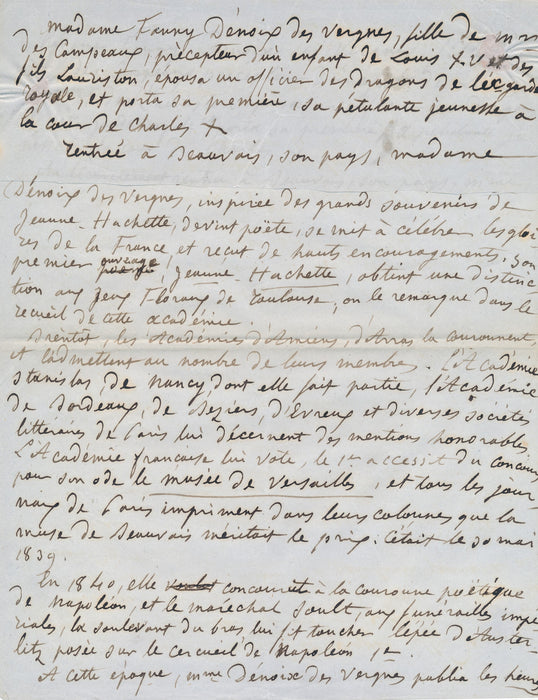 madame Fanny Dénoix des Vergnes, fille de mr
des Campeaux, précepteur d'un enfant de Louis XV et des
fils Lauriston, épousa un officier des dragons de la garde
royale, et porta sa première, sa pétulante jeunesse à
la cour de Charles X
rentrée à Beauvais, son pays, madame
Dénoix des Vergnes, inspirée des grands souvenirs de
Jeanne-Hachette, devint poëte, se mit à célébrer les gloi
res de la France et reçut de hauts encouragements. Son
premier ouvrage, Jeanne Hachette, obtint une distinc
tion aux Jeux Floraux de Toulouse, on le remarque dans le
recueil de cette académie.
Bientôt, les Académies d'Amiens, d'Arras la couronnent
et l'admettent au nombre de leurs membres. L'Académie
Stanislas, de Nancy, dont elle fait partie, l'Académie
de Bordeaux, de Beziers, d'Evreux et diverses sociétés
littéraires de Paris lui décernent des mentions honorables.
L'Académie française lui vote, le 1er accessit du concours
pour son ode le musée de Versailles, et tous les jour
naux de Paris impriment dans leurs colonnes que la
muse de Beauvais méritait le prix. C'était le 30 mai
1839.
En 1840, elle concourut à la couronne poëtique
de Napoléon, et le maréchal Soult, aux funérailles impé
riales, la soulevant du bras, lui fit toucher l'épée d'Auster
litz posée sur le cercueil de Napoléon 1er
A cette époque, mme Dénoix des Vergnes publia les heures